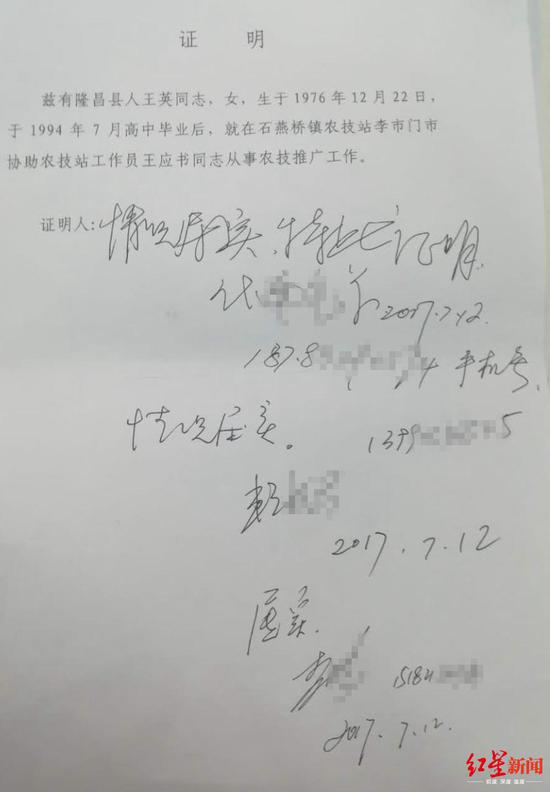 证 明
兹有隆昌县人王英同志，女，生于1976年12月22日，
于1994年7月高中毕业后，就在石燕桥镇农技站李市门市
协助农技站工作员王应书同志从事农技推广工作。
证明人：情况属实，特此证明
代
2017.7.12
187.8 4 手机号
情况属实。 1399 5
2017.7.12
属实。
李 15184
2017.7.12.
红星新闻
前瞻 深度 温度